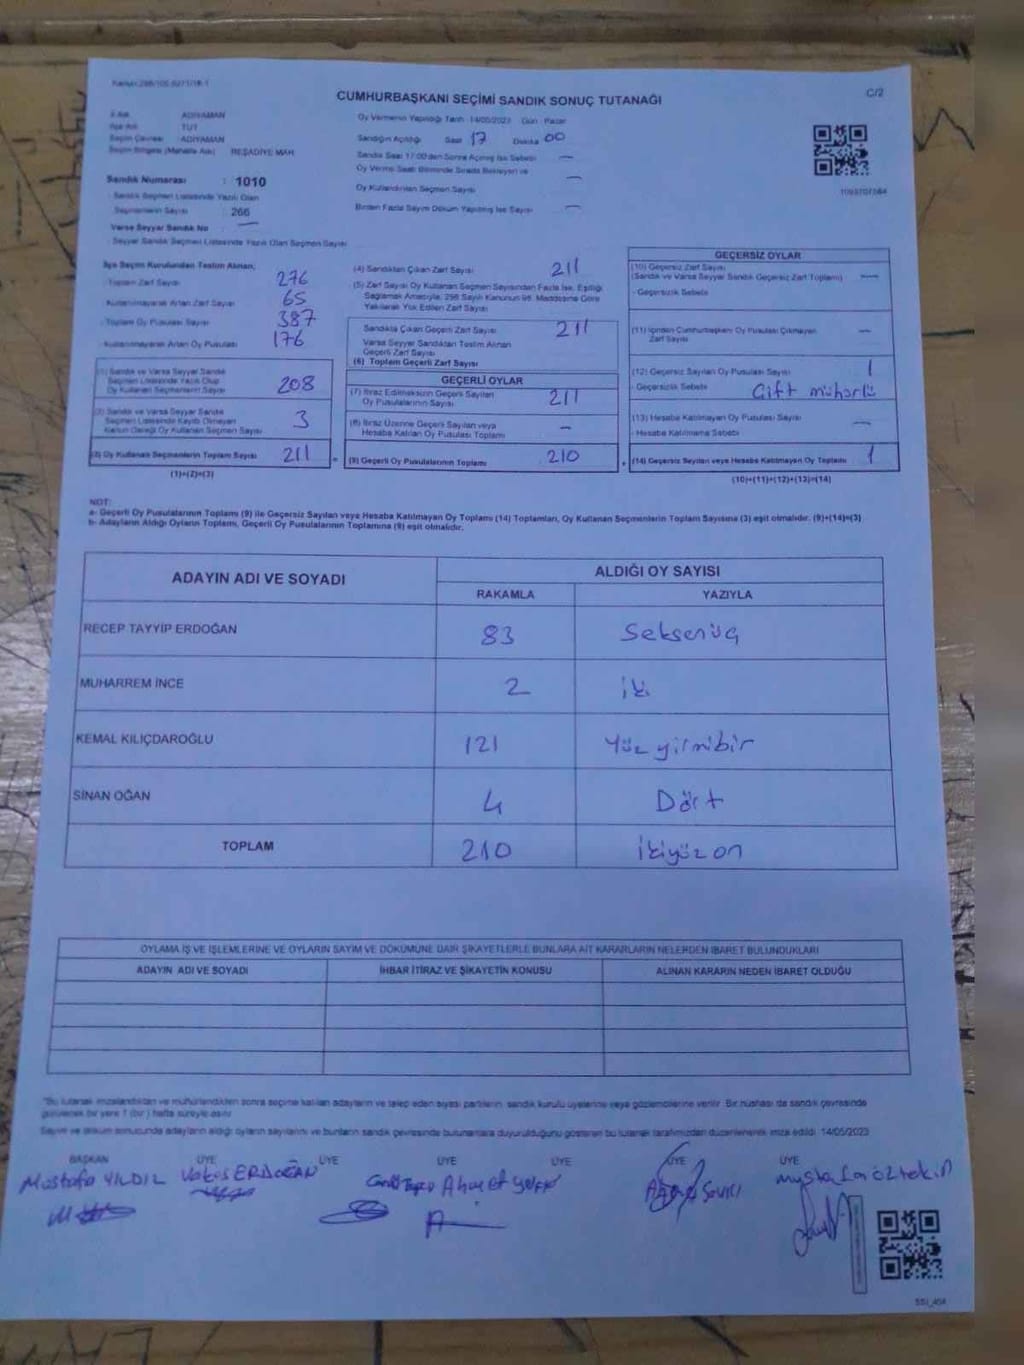 CUMHURBAŞKANI SEÇİMİ SANDIK SONUÇ TUTANAĞI
C/2
İl Adı ADIYAMAN
İlçe Adı TUT
Seçim Çevresi ADIYAMAN
Seçim Bölgesi (Mahalle Adı) REŞADİYE MAH.
Sandık Numarası : 1010
Sandık Seçmen Listesinde Yazılı Olan
Seçmenlerin Sayısı : 266
Varsa Seyyar Sandık No : —
Seyyar Sandık Seçmen Listesinde Yazılı Olan Seçmen Sayısı
Oy Vermenin Yapıldığı Tarih 14/05/2023 Gün : Pazar
Sandığın Açıldığı Saat 17 Dakika 00
Sandık Saat 17:00'den Sonra Açılmış İse Sebebi —
Oy Verme Saati Bitiminde Sırada Bekleyen ve
Oy Kullandırılan Seçmen Sayısı —
Birden Fazla Sayım Döküm Yapılmış İse Sayısı —
İlçe Seçim Kurulundan Teslim Alınan;
Toplam Zarf Sayısı 276
Kullanılmayarak Artan Zarf Sayısı 65
Toplam Oy Pusulası Sayısı 387
Kullanılmayarak Artan Oy Pusulası 176
(1) Sandık ve Varsa Seyyar Sandık
Seçmen Listesinde Yazılı Olup
Oy Kullanan Seçmenlerin Sayısı 208
(2) Sandık ve Varsa Seyyar Sandık
Seçmen Listesinde Kaydı Olmayan
Kanun Gereği Oy Kullanan Seçmen Sayısı 3
(3) Oy Kullanan Seçmenlerin Toplam Sayısı 211
(1)+(2)=(3)
(4) Sandıktan Çıkan Zarf Sayısı 211
(5) Zarf Sayısı Oy Kullanan Seçmen Sayısından Fazla İse, Eşitliği
Sağlamak Amacıyla, 298 Sayılı Kanunun 98. Maddesine Göre
Yakılarak Yok Edilen Zarf Sayısı
Sandıkta Çıkan Geçerli Zarf Sayısı 211
Varsa Seyyar Sandıktan Teslim Alınan
Geçerli Zarf Sayısı
(6) Toplam Geçerli Zarf Sayısı
GEÇERLİ OYLAR
(7) İtiraz Edilmeksizin Geçerli Sayılan
Oy Pusulalarının Sayısı 211
(8) İtiraz Üzerine Geçerli Sayılan veya
Hesaba Katılan Oy Pusulası Toplamı —
(9) Geçerli Oy Pusulalarının Toplamı 210
GEÇERSİZ OYLAR
(10) Geçersiz Zarf Sayısı
(Sandık ve Varsa Seyyar Sandık Geçersiz Zarf Toplamı) —
- Geçersizlik Sebebi
(11) İçinden Cumhurbaşkanı Oy Pusulası Çıkmayan
Zarf Sayısı —
(12) Geçersiz Sayılan Oy Pusulası Sayısı 1
- Geçersizlik Sebebi Çift mühürlü
(13) Hesaba Katılmayan Oy Pusulası Sayısı —
- Hesaba Katılmama Sebebi
(14) Geçersiz Sayılan veya Hesaba Katılmayan Oy Toplamı 1
(10)+(11)+(12)+(13)=(14)
NOT:
a- Geçerli Oy Pusulalarının Toplamı (9) ile Geçersiz Sayılan veya Hesaba Katılmayan Oy Toplamı (14) Toplamları, Oy Kullanan Seçmenlerin Toplam Sayısına (3) eşit olmalıdır. (9)+(14)=(3)
b- Adayların Aldığı Oyların Toplamı, Geçerli Oy Pusulalarının Toplamına (9) eşit olmalıdır.
ADAYIN ADI VE SOYADI ALDIĞI OY SAYISI
RAKAMLA YAZIYLA
RECEP TAYYİP ERDOĞAN 83 Seksenüç
MUHARREM İNCE 2 İki
KEMAL KILIÇDAROĞLU 121 Yüz yirmibir
SİNAN OĞAN 4 Dört
TOPLAM 210 İkiyüz on
OYLAMA İŞ VE İŞLEMLERİNE VE OYLARIN SAYIM VE DÖKÜMÜNE DAİR ŞİKAYETLERLE BUNLARA AİT KARARLARIN NELERDEN İBARET BULUNDUKLARI
ADAYIN ADI VE SOYADI İHBAR İTİRAZ VE ŞİKAYETİN KONUSU ALINAN KARARIN NEDEN İBARET OLDUĞU
*Bu tutanak imzalandıktan ve mühürlendikten sonra seçime katılan adayların ve talep eden siyasi partilerin, sandık kurulu üyelerine veya gözlemcilerine verilir. Bir nüshası da sandık çevresinde
görülecek bir yere 1 (bir ) hafta süreyle asılır.
Sayım ve döküm sonucunda adayların aldığı oyların sayılarını ve bunların sandık çevresinde bulunanlara duyurulduğunu gösteren bu tutanak tarafımızdan düzenlenerek imza edildi. 14/05/2023
BAŞKAN ÜYE ÜYE ÜYE ÜYE ÜYE ÜYE
Mustafa YILDIZ ERDOĞAN Ahmet Mustafa öztekin